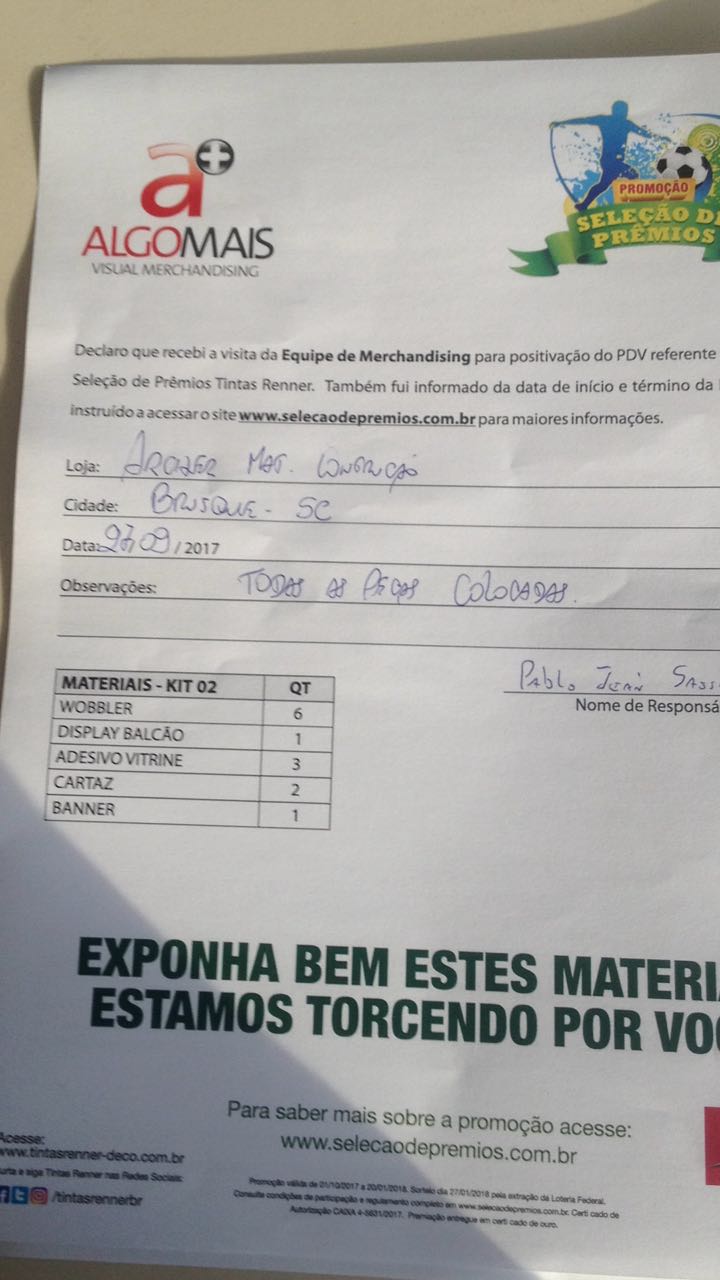 a+
ALGOMAIS
VISUAL MERCHANDISING
PROMOÇÃO
SELEÇÃO DE
PRÊMIOS
Declaro que recebi a visita da Equipe de Merchandising para positivação do PDV referente
Seleção de Prêmios Tintas Renner. Também fui informado da data de início e término da
instruído a acessar o site www.selecaodepremios.com.br para maiores informações.
Loja: MAT.
Cidade: BRUSQUE - SC
Data: 27/09/2017
Observações: TODAS AS PEÇAS COLOCADAS.
PABLO
Nome de Responsá
MATERIAIS - KIT 02 QT
WOBBLER 6
DISPLAY BALCÃO 1
ADESIVO VITRINE 3
CARTAZ 2
BANNER 1
EXPONHA BEM ESTES MATERIA
ESTAMOS TORCENDO POR VOC
Para saber mais sobre a promoção acesse:
www.selecaodepremios.com.br
Acesse:
www.tintasrenner-deco.com.br
urta e siga Tintas Renner nas Redes Sociais:
/tintasrennerbr
Promoção válida de 01/10/2017 a 20/01/2018. Sorteio dia 27/01/2018 pela extração da Loteria Federal.
Consulte condições de participação e regulamento completo em www.selecaodepremios.com.br. Certi cado de
Autorização CAIXA 4-5631/2017. Premiação entregue em certi cado de ouro.